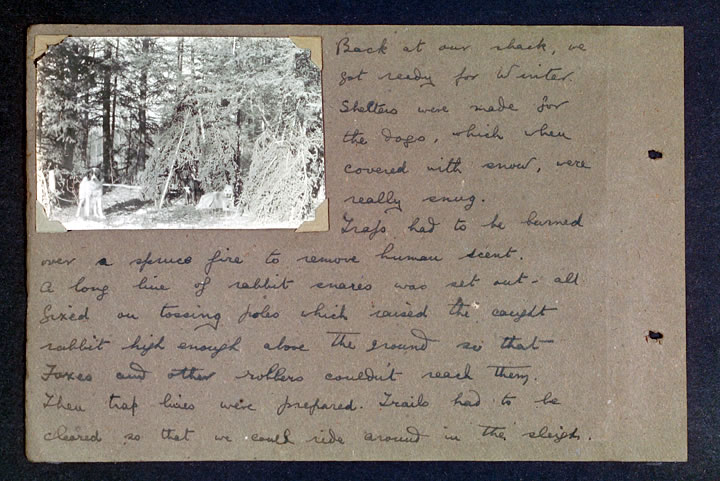 Back at our shack, we
got ready for Winter.
Shelters were made for
the dogs, which when
covered with snow, were
really snug.
Traps had to be burned
over a spruce fire to remove human scent.
A long line of rabbit snares was set out - all
fixed on tossing poles which raised the caught
rabbit high enough above the ground so that
Foxes and other robbers couldn't reach them.
Then trap lines were prepared. Trails had to be
cleared so that we could ride around in the sleigh.